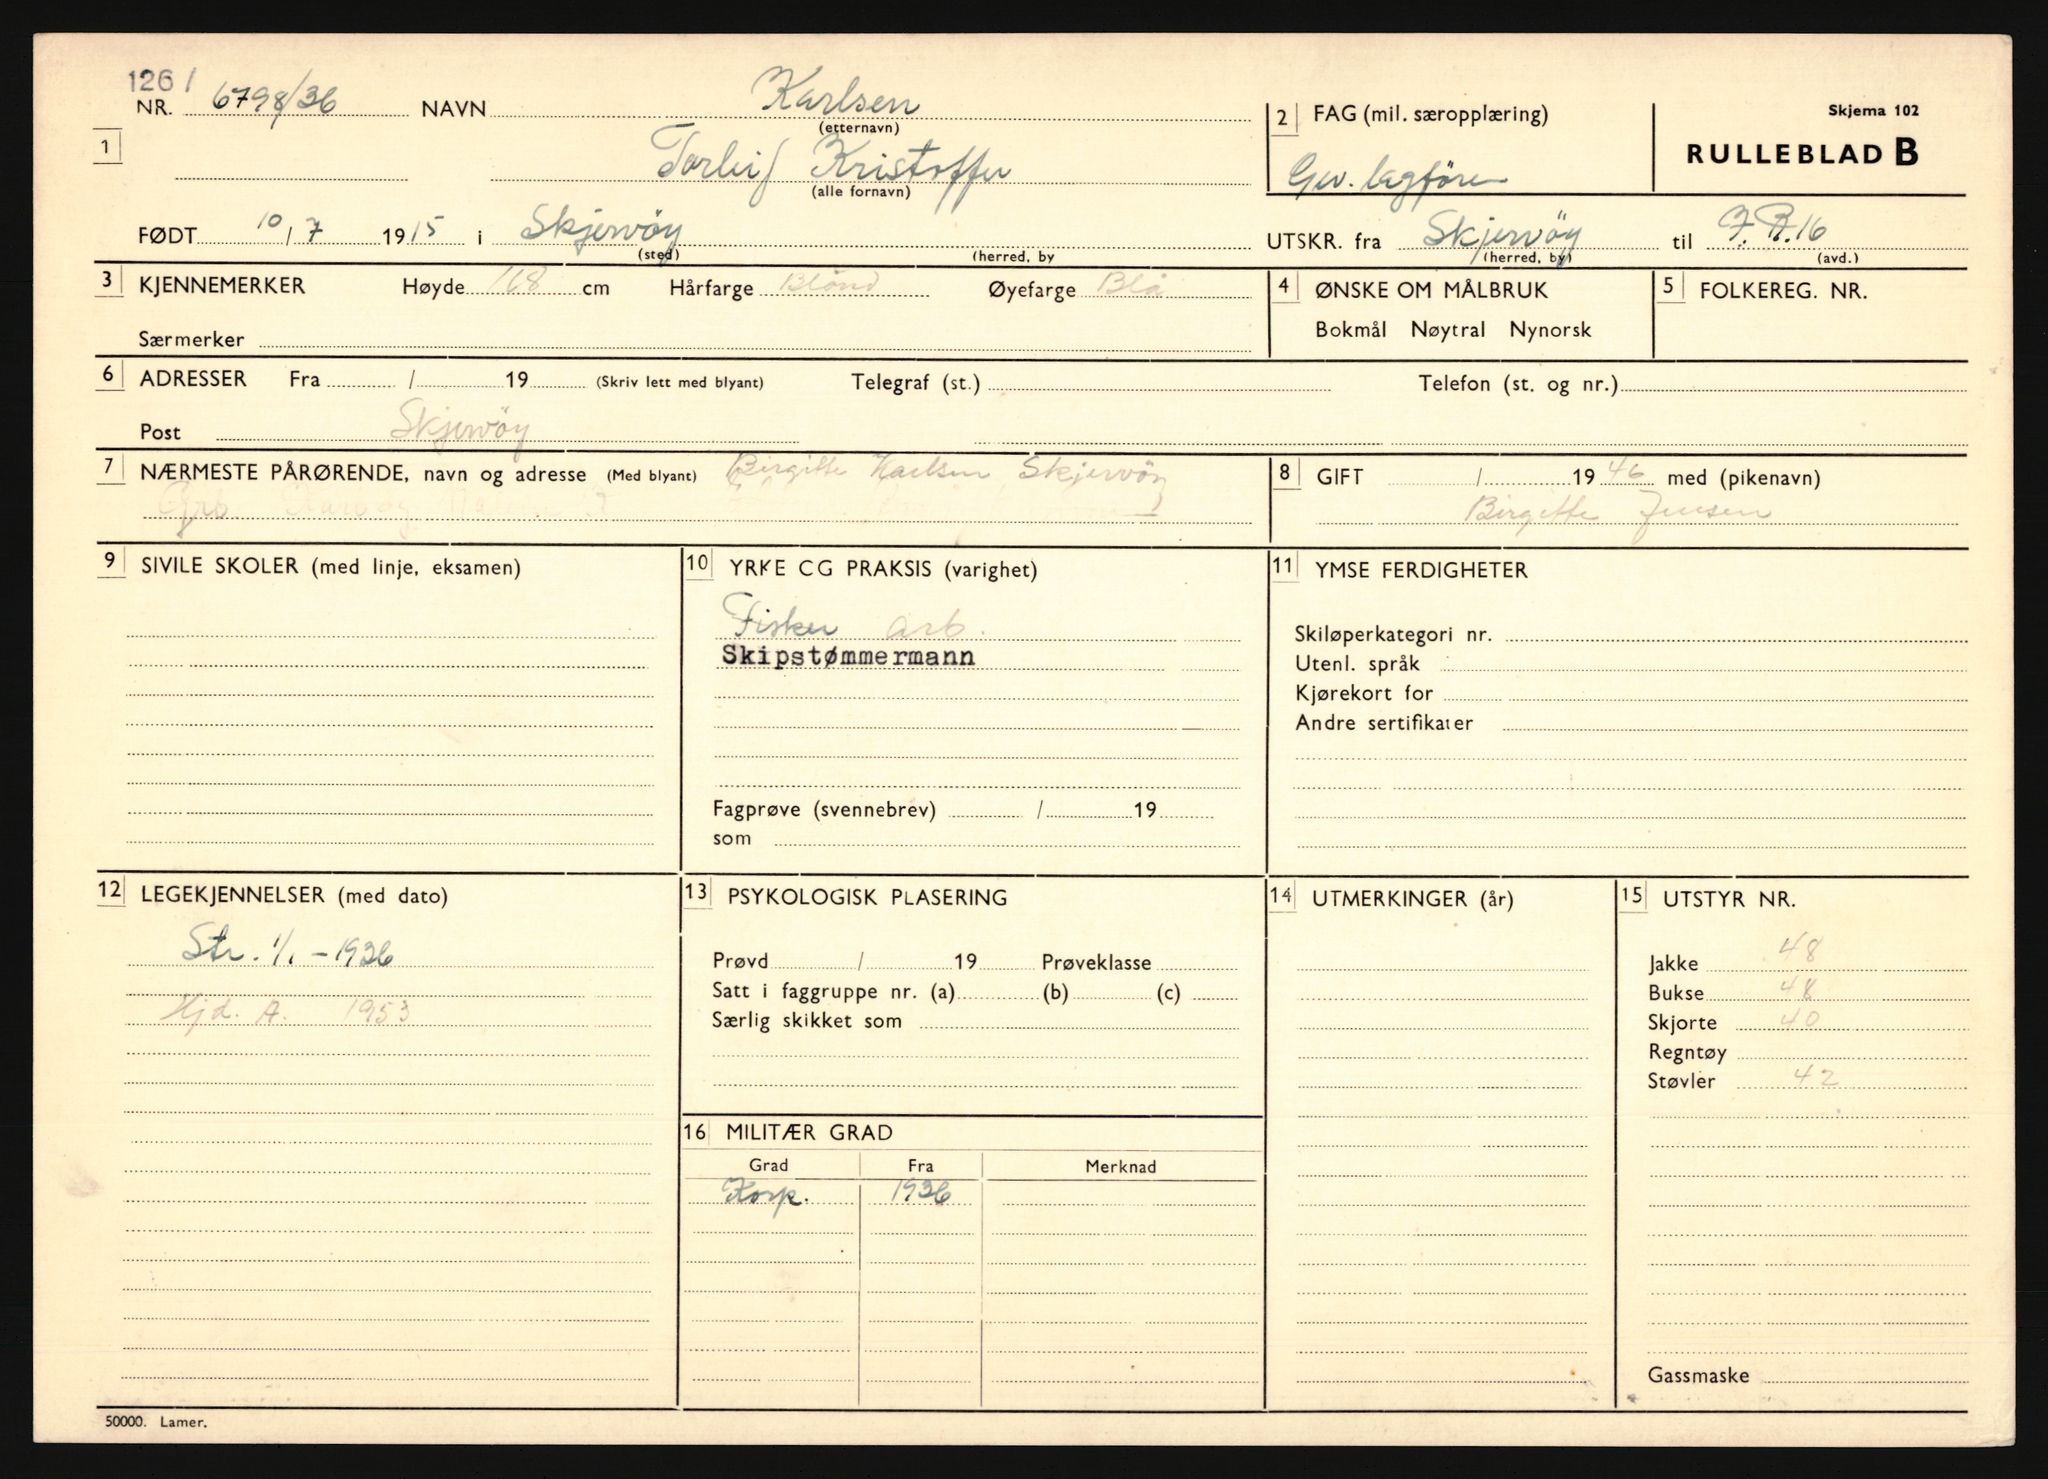 1261
NR. 6798/36 NAVN Karlsen
(etternavn)
2 FAG (mil. særopplæring)
Skjema 102
RULLEBLAD B
1
Torleif Kristoffer
(alle fornavn)
Gev. lagförer
FØDT 10/7 1915 i Skjervöy
(sted) (herred, by
UTSKR. fra Skjervöy til I.R.16
(herred, by) (avd.)
3 KJENNEMERKER Høyde 168 cm Hårfarge Blond Øyefarge Blå
Særmerker
4 ØNSKE OM MÅLBRUK
Bokmål Nøytral Nynorsk
5 FOLKEREG. NR.
6 ADRESSER Fra / 19 (Skriv lett med blyant) Telegraf (st.) Telefon (st. og nr.)
Post Skjervöy
7 NÆRMESTE PÅRØRENDE, navn og adresse (Med blyant) Birgitte Karlsen Skjervöy
8 GIFT / 1946 med (pikenavn)
Birgitte Jensen
9 SIVILE SKOLER (med linje, eksamen)
10 YRKE CG PRAKSIS (varighet)
Fisker arb.
Skipstømmermann
Fagprøve (svennebrev) / 19
som
11 YMSE FERDIGHETER
Skiløperkategori nr.
Utenl. språk
Kjørekort for
Andre sertifikater
12 LEGEKJENNELSER (med dato)
Str. 1/1 - 1936
Hjd. A. 1953
13 PSYKOLOGISK PLASERING
Prøvd / 19 Prøveklasse
Satt i faggruppe nr. (a) (b) (c)
Særlig skikket som
14 UTMERKINGER (år)
15 UTSTYR NR.
Jakke 48
Bukse 48
Skjorte 40
Regntøy
Støvler 42
Gassmaske
16 MILITÆR GRAD
Grad Fra Merknad
Korp. 1936
50000. Lamer.